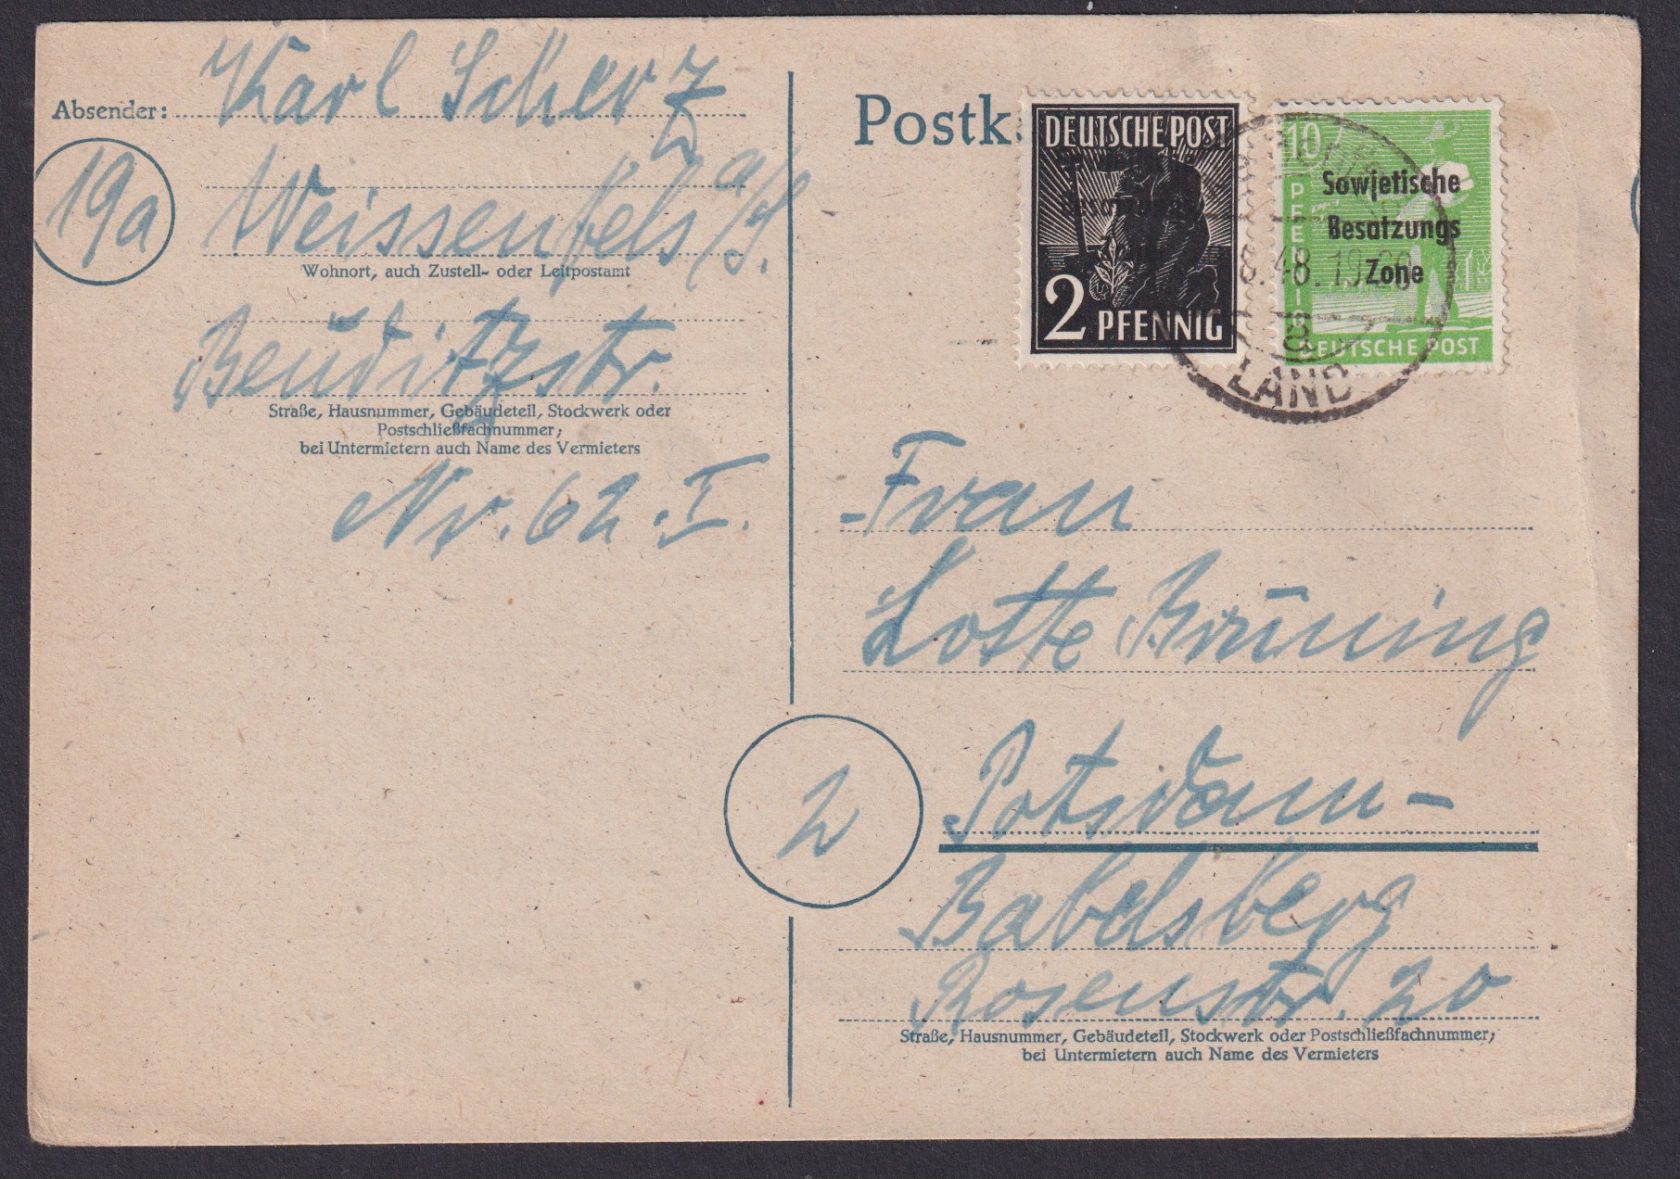 Absender: Karl Scherz
19a
Weissenfels a/S.
Wohnort, auch Zustell- oder Leitpostamt
Beuditzstr.
Straße, Hausnummer, Gebäudeteil, Stockwerk oder
Postschließfachnummer;
bei Untermietern auch Name des Vermieters
Nr. 62.I.
Postk
DEUTSCHE POST
2 PFENNIG
10
PFENNIG
Sowjetische
Besatzungs
Zone
DEUTSCHE POST
8.48.19
LAND
Frau
Lotte Brüning
2
Potsdam-
Babelsberg
Rosenstr. 20
Straße, Hausnummer, Gebäudeteil, Stockwerk oder Postschließfachnummer;
bei Untermietern auch Name des Vermieters